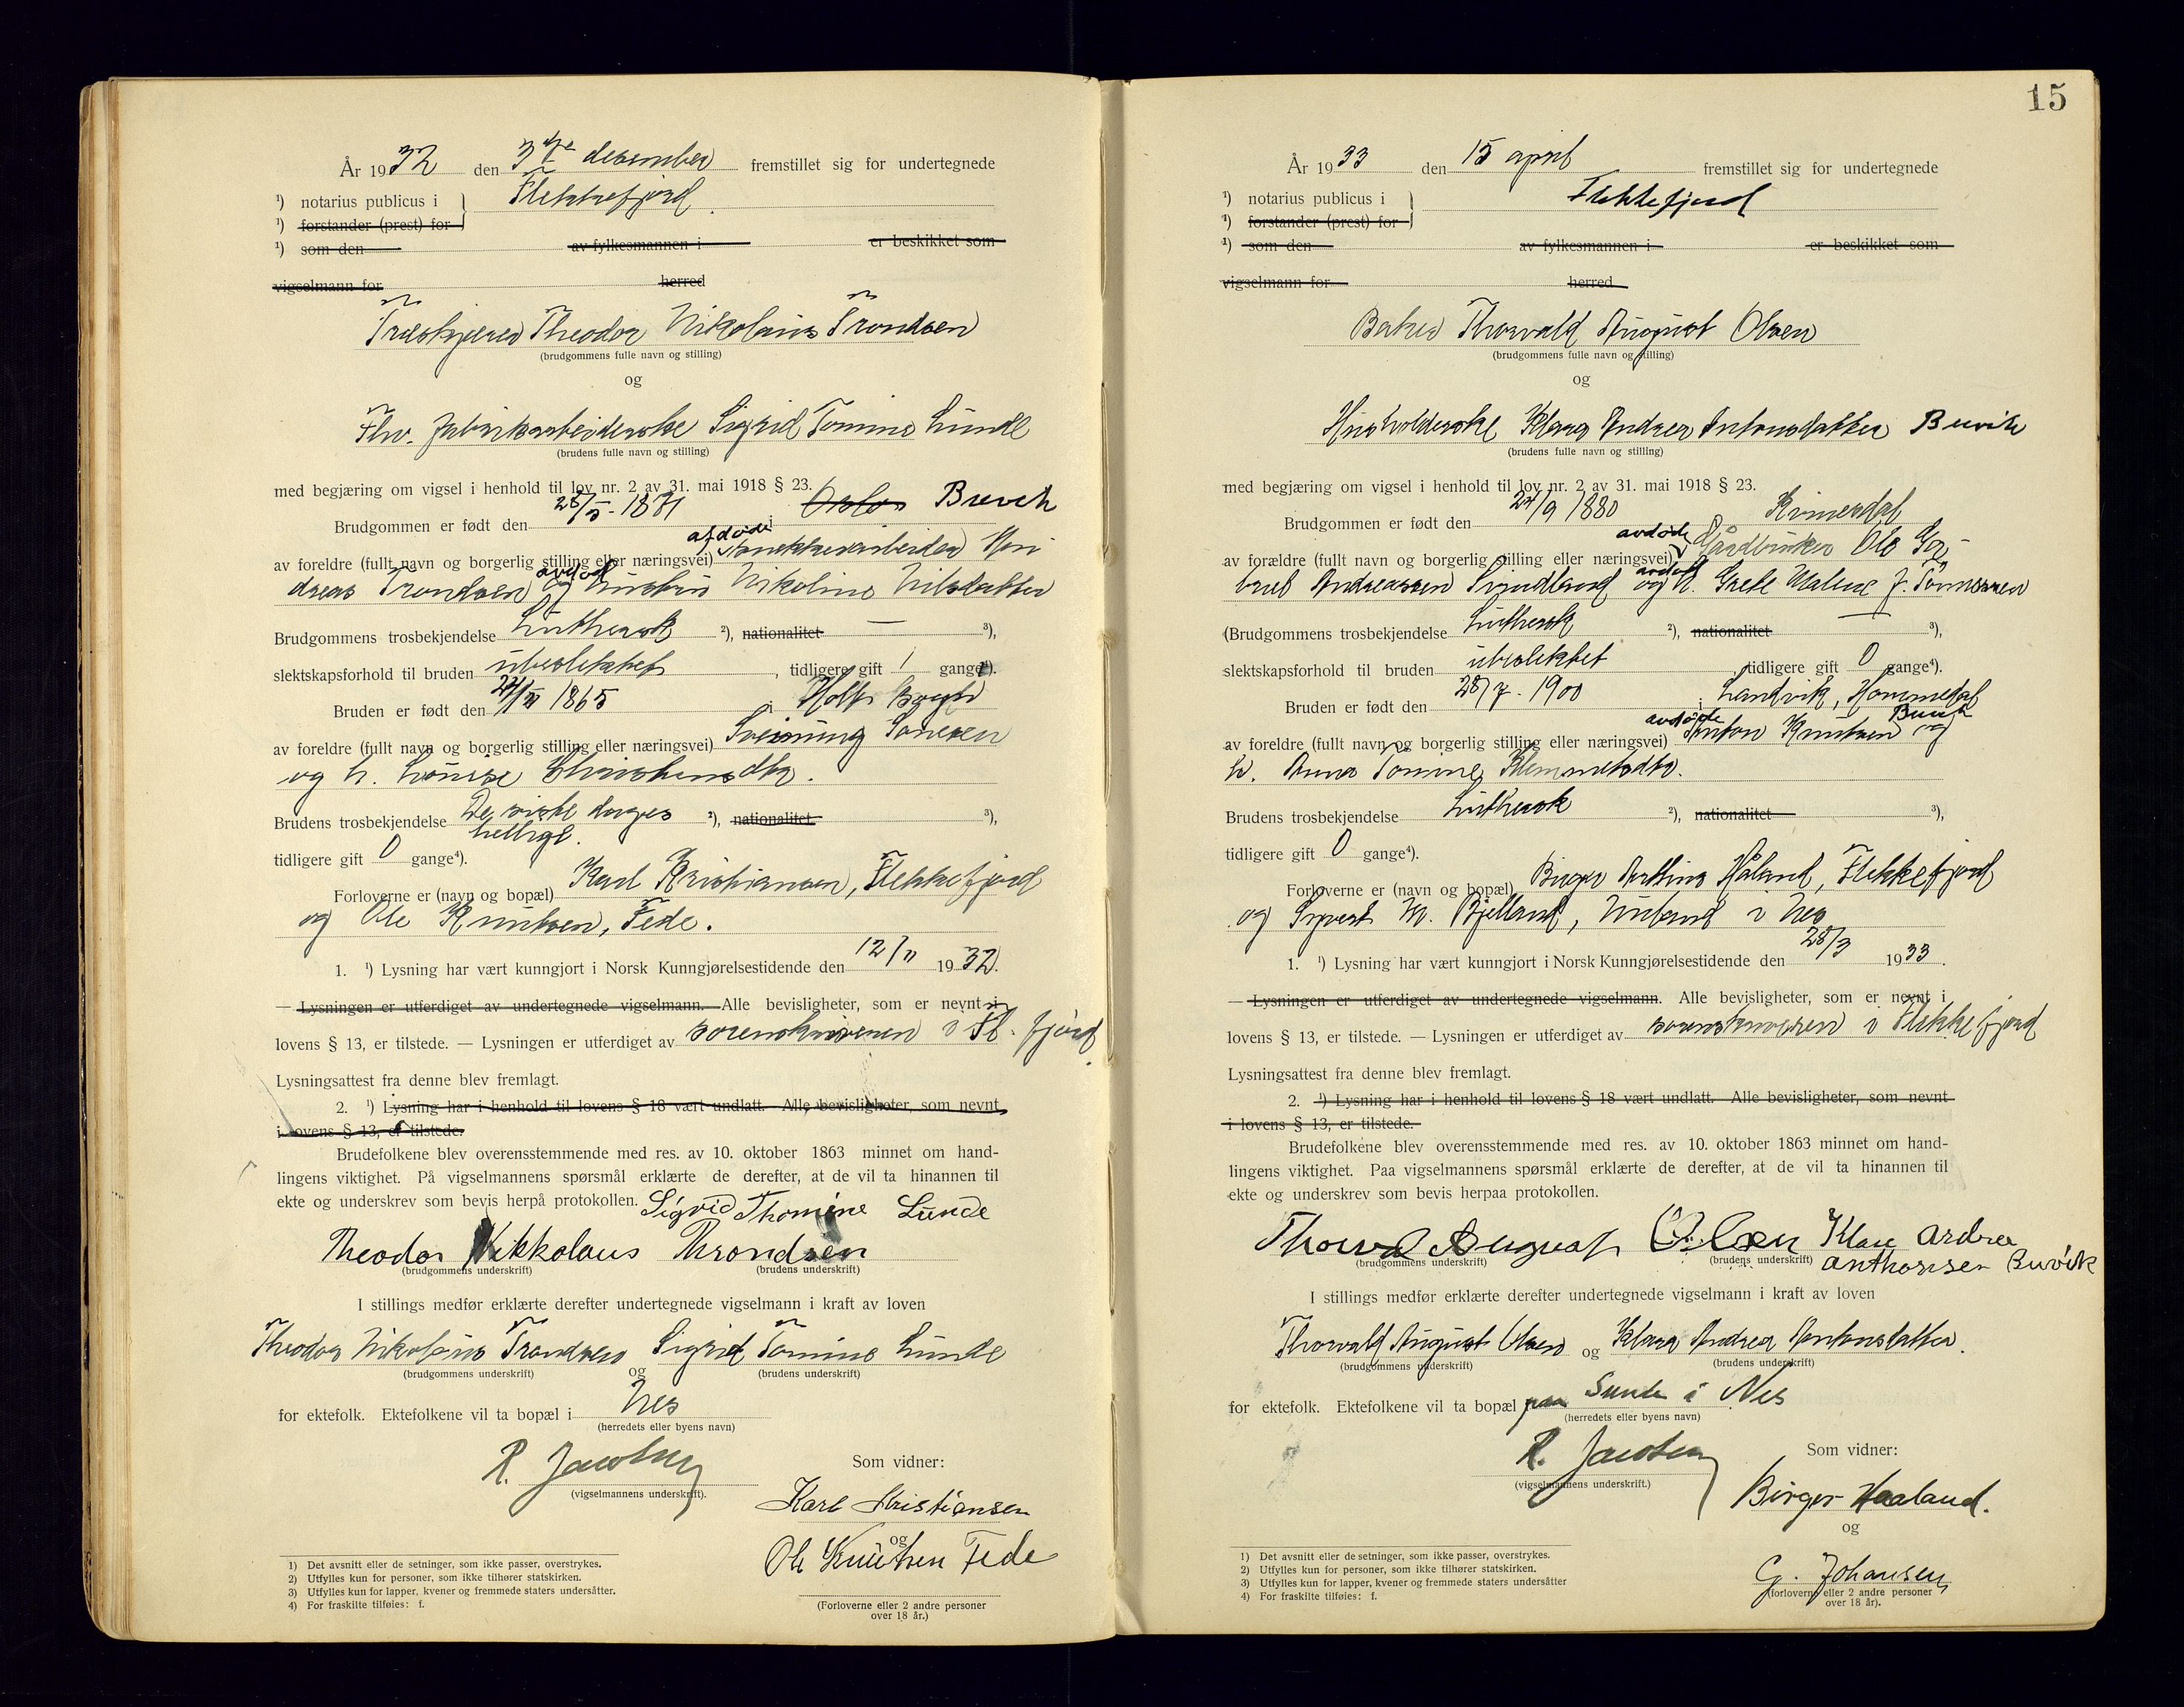 År 1932 den 3dje desember fremstillet sig for undertegnede
¹) notarius publicus i Flekkefjord
¹) forstander (prest) for
¹) som den av fylkesmannen i er beskikket som
vigselmann for herred
Træskjærer Theodor Nikolaus Trondsen
(brudgommens fulle navn og stilling)
og
Fhv. fabrikarbeiderske Sigrid Tomine Lunde
(brudens fulle navn og stilling)
med begjæring om vigsel i henhold til lov nr. 2 av 31. mai 1918 § 23.
Brudgommen er født den 28/5-1871 i Oslo Brevik
av foreldre (fullt navn og borgerlig stilling eller næringsvei) afdøde
dreas Trondsen og avdød hustru Nikoline Nilsdatter
Brudgommens trosbekjendelse Luthersk ²), nationalitet — ³),
slektskapsforhold til bruden ubeslektet, tidligere gift 1 gange⁴).
Bruden er født den 1865 i Holt
av foreldre (fullt navn og borgerlig stilling eller næringsvei)
og h. Louise
Brudens trosbekjendelse De siste dages ²), nationalitet ³),
hellige.
tidligere gift 0 gange⁴).
Forloverne er (navn og bopæl) Karl Kristiansen, Flekkefjord
og Ole Knutsen, Fede.
1. ¹) Lysning har vært kunngjort i Norsk Kunngjørelsestidende den 12/11 1932.
— Lysningen er utferdiget av undertegnede vigselmann. Alle bevisligheter, som er nevnt i
lovens § 13, er tilstede. — Lysningen er utferdiget av sorenskriveren i Fl.fjord.
Lysningsattest fra denne blev fremlagt.
2. ¹) Lysning har i henhold til lovens § 18 vært undlatt. Alle bevisligheter, som nevnt
i lovens § 13, er tilstede.
Brudefolkene blev overensstemmende med res. av 10. oktober 1863 minnet om hand-
lingens viktighet. På vigselmannens spørsmål erklærte de derefter, at de vil ta hinannen til
ekte og underskrev som bevis herpå protokollen. Sigrid Thomine Lunde
Theodor Nikkolaus Throndsen
(brudgommens underskrift) (brudens underskrift)
I stillings medfør erklærte derefter undertegnede vigselmann i kraft av loven
Theodor Nikolaus Trondsen Sigrid Tomine Lunde
(brudgommens underskrift) og (brudens underskrift)
for ektefolk. Ektefolkene vil ta bopæl i Nes
(herredets eller byens navn)
R. Jacobsen
(vigselmannens underskrift).
Som vidner:
Karl Kristiansen
og
Ole Knutsen Fede
(Forloverne eller 2 andre personer
over 18 år.)
1) Det avsnitt eller de setninger, som ikke passer, overstrykes.
2) Utfylles kun for personer, som ikke tilhører statskirken.
3) Utfylles kun for lapper, kvener og fremmede staters undersåtter.
4) For fraskilte tilføies: f.
15
År 1933 den 15 april fremstillet sig for undertegnede
¹) notarius publicus i Flekkefjord
¹) forstander (prest) for
¹) som den av fylkesmannen i er beskikket som
vigselmann for herred
Baker Thorvald August Olsen
(brudgommens fulle navn og stilling)
og
Husholderske Klara Andrea Antonsdatter Buvik
(brudens fulle navn og stilling)
med begjæring om vigsel i henhold til lov nr. 2 av 31. mai 1918 § 23.
Brudgommen er født den 24/9 1880 Kvinesdal
av forældre (fullt navn og borgerlig stilling eller næringsvei) avdøde Gårdbruker Ole Ga-
briel Andreassen og avdøde h. Grete Malene J. Tønnessen
(Brudgommens trosbekjendelse Luthersk ²), nationalitet — ³),
slektskapsforhold til bruden ubeslektet tidligere gift 0 gange⁴).
Bruden er født den 28/7-1900 i Landvik, Hommedal
av foreldre (fullt navn og borgerlig stilling eller næringsvei) avdøde Anton Knutsen Buvik og
h. Anna Tomine Klemmetsdtr.
Brudens trosbekjendelse Luthersk ²), nationalitet ³),
tidligere gift 0 gange⁴).
Forloverne er (navn og bopæl) Birger Håland, Flekkefjord
og M. Bjelland, i Nes
1. ¹) Lysning har vært kunngjort i Norsk Kunngjørelsestidende den 28/3 1933.
— Lysningen er utferdiget av undertegnede vigselmann. Alle bevisligheter, som er nevnt i
lovens § 13, er tilstede. — Lysningen er utferdiget av sorenskriveren i Flekkefjord
Lysningsattest fra denne blev fremlagt.
2. ¹) Lysning har i henhold til lovens § 18 vært undlatt. Alle bevisligheter, som nevnt
i lovens § 13, er tilstede.
Brudefolkene blev overensstemmende med res. av 10. oktober 1863 minnet om hand-
lingens viktighet. Paa vigselmannens spørsmål erklærte de derefter, at de vil ta hinannen til
ekte og underskrev som bevis herpaa protokollen.
Thorvald August Olsen Klara Andrea
(brudgommens underskrift) (brudens underskrift) Anthonsen Buvik
I stillings medfør erklærte derefter undertegnede vigselmann i kraft av loven
Thorvald August Olsen og Klara Andrea Antonsdatter
(brudgommens underskrift) (brudens underskrift)
for ektefolk. Ektefolkene vil ta bopæl paa Sunde i Nes
(herredets eller byens navn)
R. Jacobsen
(vigselmannens underskrift.)
Som vidner:
Birger Haaland.
og
G. Johansen
(forloverne eller 2 andre personer
over 18 år).
1) Det avsnitt eller de setninger, som ikke passer, overstrykes.
2) Utfylles kun for personer, som ikke tilhører statskirken.
3) Utfylles kun for lapper, kvener og fremmede staters undersåtter
4) For fraskilte tilføies: f.